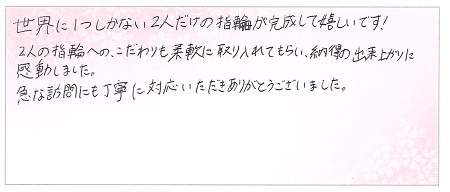 世界に1つしかない2人だけの指輪が完成して嬉しいです!
2人の指輪への、こだわりも柔軟に取り入れてもらい、納得の出来上がりに
感動しました。
急な訪問にも丁寧に対応いただきありがとうございました。